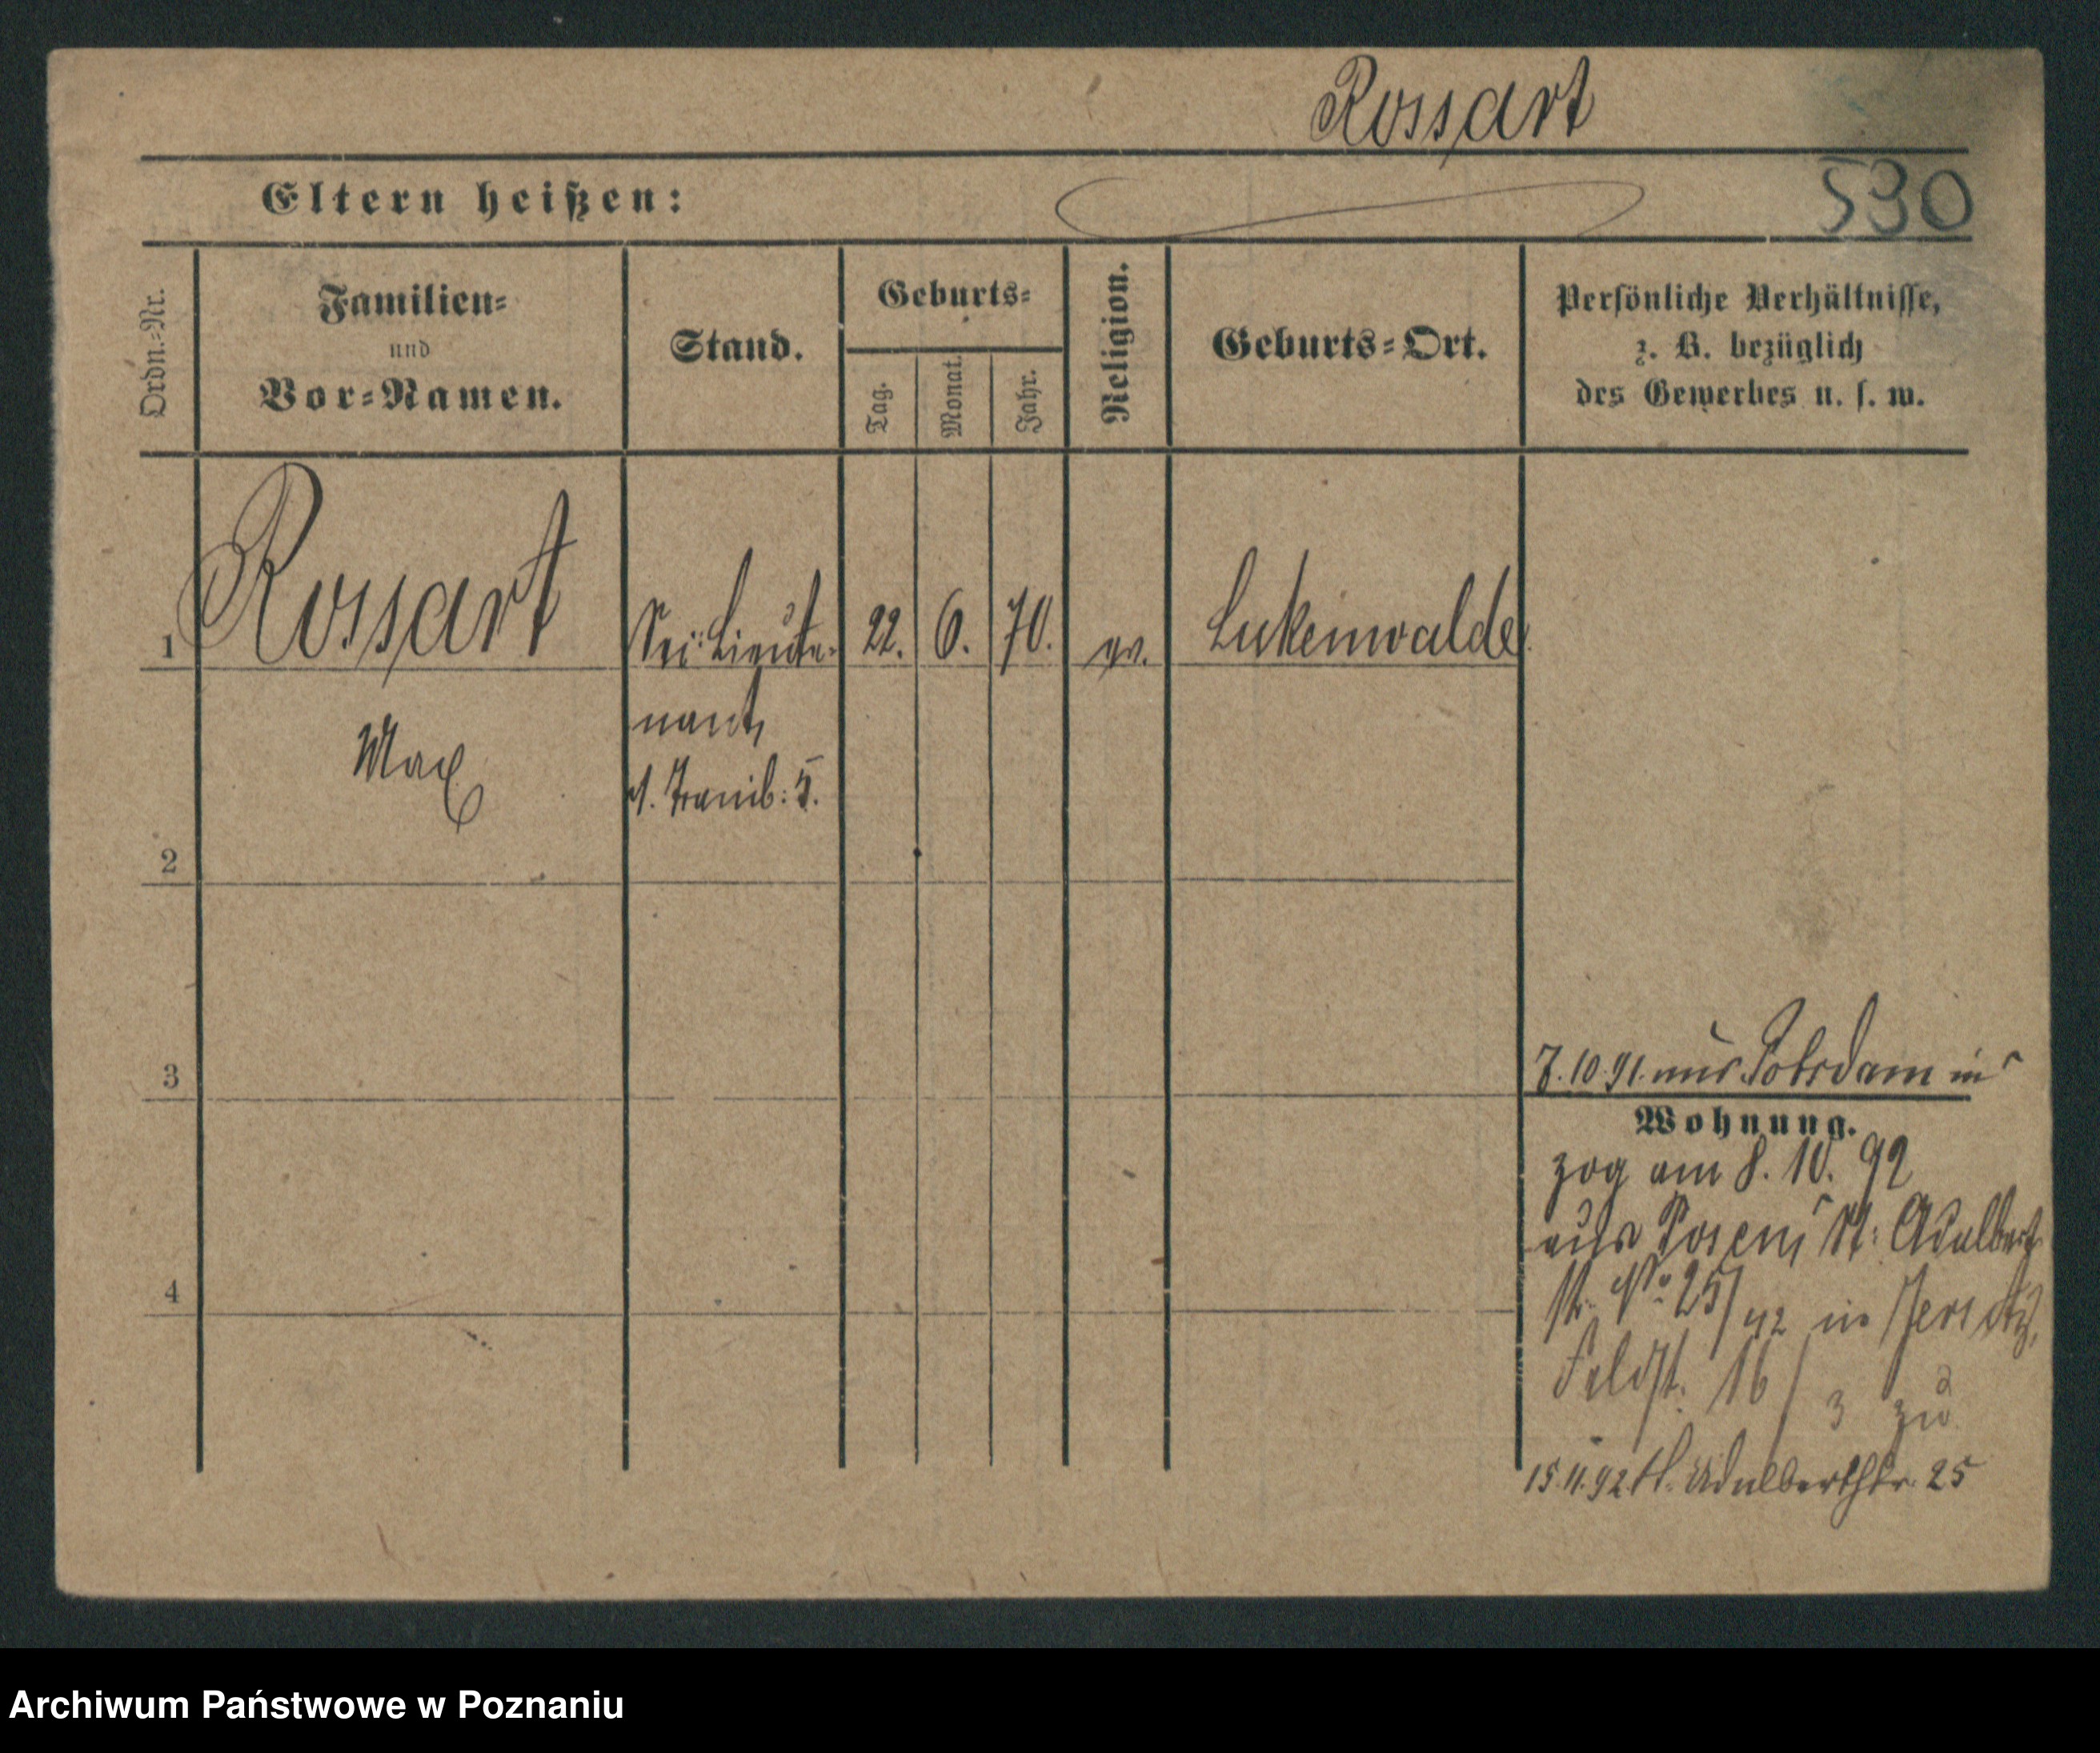 Rossart
Eltern heißen:
530
Ordn.=Nr.
Familien=
und
Vor=Namen.
Stand.
Geburts=
Tag.
Monat.
Jahr.
Religion.
Geburts=Ort.
Persönliche Verhältnisse,
z. B. bezüglich
des Gewerbes u. s. w.
1
Rossart
Max
Sec: Lieute-
nant,
22.
6.
70.
ev.
Lukenwalde
2
3
4
7.10.91. aus Potsdam
Wohnung.
zog am 8. 10. 92
aus Posen, St: Adalbert
str. No. 25/42 in Jersitz,
Feldst. 16/3 zu
15.11.92. St. Adalbertstr. 25
Archiwum Państwowe w Poznaniu